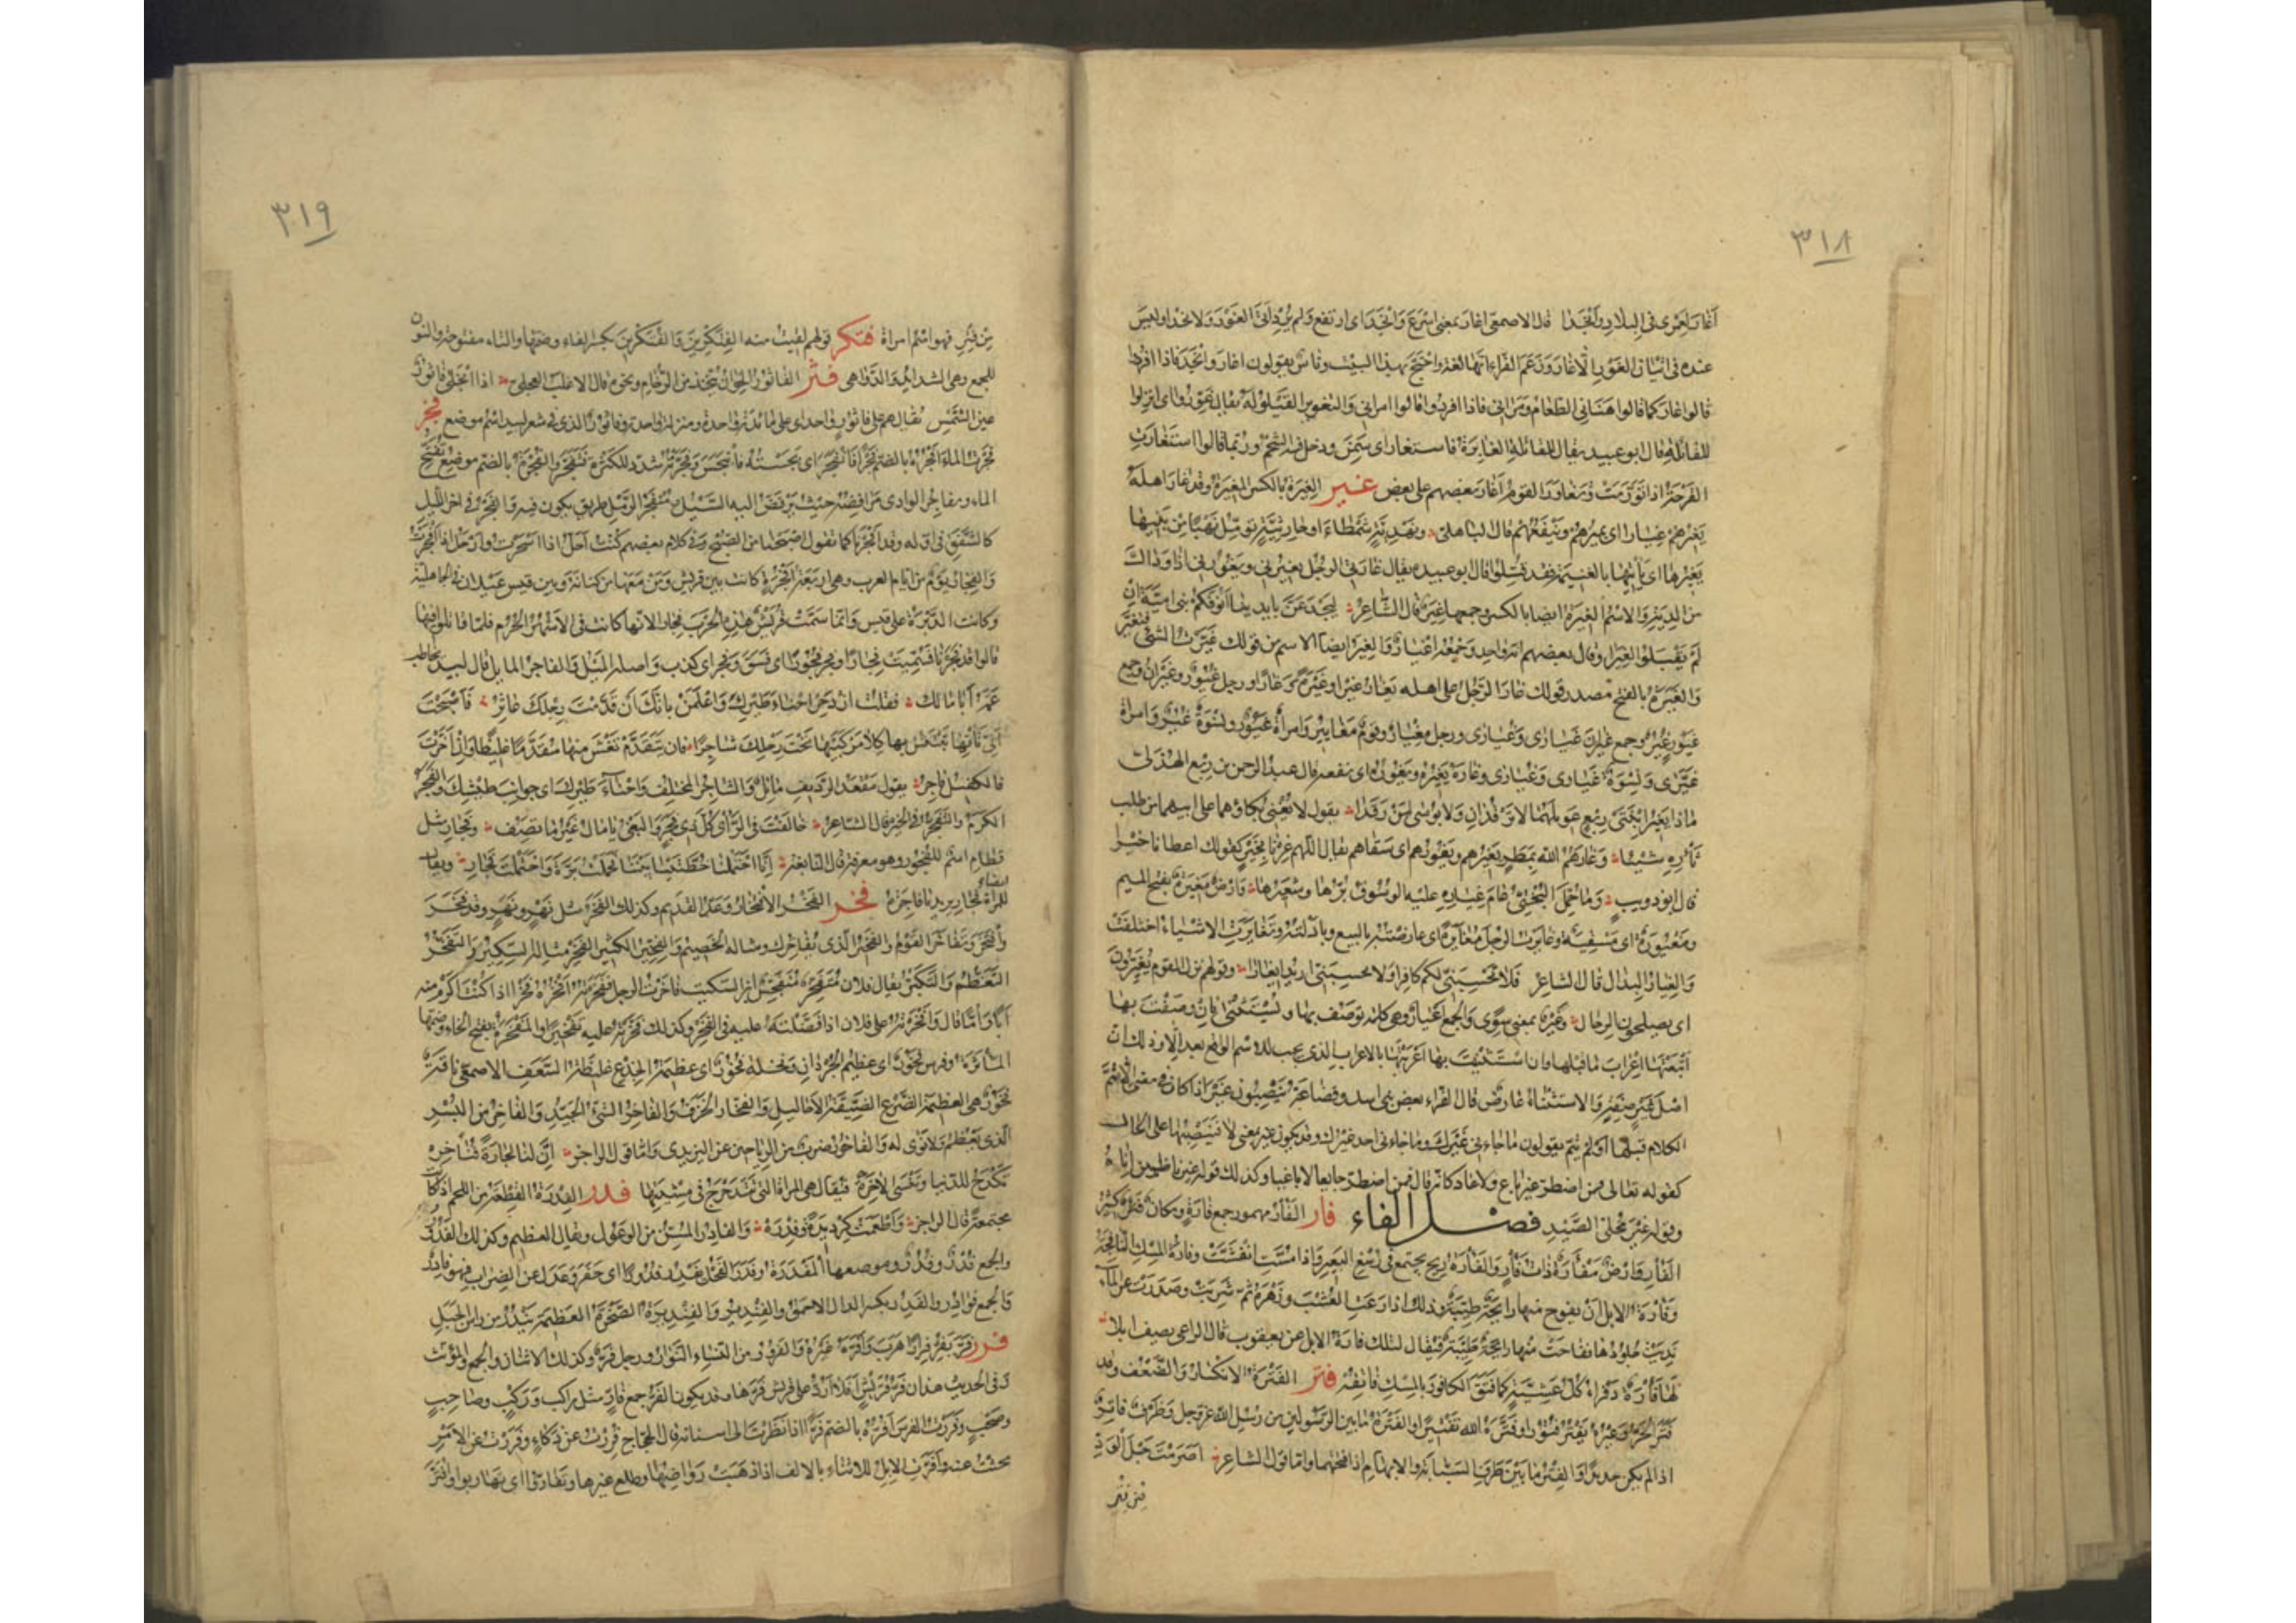 ٣١٨
اغار لعمري في البلاد وانجدا قال الاصمعي اغار بمعنى اسرع وانجد اي ارتفع ولم يرد اتى الغور ولا نجدا وليس
عنده في اتيان الغور الا غار وزعم الفراء انها لغة واحتج بهذا البيت وناس يقولون اغار وانجد فاذا افردوا
قالوا غار كما قالوا هنأني الطعام ومرأني فاذا افردوا قالوا امرأني والتغوير القيلولة يقال غوروا اي انزلوا
للقائلة قال ابو عبيد يقال للقائلة الغائرة فاستغار اي سمن ودخل فيه الشحم وربما قالوا استغارت
القرحة اذا تورمت وتغاور القوم اغار بعضهم على بعض غير الغيرة بالكسر الميرة وقد غار اهله
يغيرهم غيارا اي يميرهم وينفعهم قال الباهلي ونهدية شمطاء او حارثية تؤمل نهبا من بنيها
يغيرها اي يأتيها بالغنيمة فقد قتلوا قال ابو عبيدة يقال غارني الرجل يغيرني ويغورني اذا وداك
من الدية والاسم الغيرة ايضا بالكسر وجمعها غير قال الشاعر لنجدعن بايدينا انوفكم بني امية ان
لم يقبلوا الغيرا وقال بعضهم انه واحد وجمعه اغيار والغير ايضا الاسم من قولك غيرت الشئ فتغير
والغيرة بالفتح مصدر قولك غار الرجل على اهله يغار غيرا وغيرة وغارا ورجل غيور وغيران وجمع
غيور غير وجمع غيران غيارى وغيارى ورجل مغيار وقوم مغايير وامرأة غيور ونسوة غير وامرأة
غيرى ونسوة غيارى وغيارى وغاره يغيره ويغوره اي نفعه قال عبد الرحمن بن ربع الهذلي
ماذا يغير ابنتي ربع عويلهما لا ترقدان ولا بؤسى لمن رقدا يقول لا يغني بكاؤهما على ابيهما من طلب
ثأره شيئا وغارهم الله بمطر يغيرهم ويغورهم اي سقاهم يقال اللهم غرنا بخير كقولك اعطنا خيرا
قال ابو ذويب وما حمل البختي عام غياره عليه الوسوق برها وشعيرها وارض مغيرة بفتح الميم
ومغيورة اي مسقية وغايرت الرجل مغايرة اي عارضته بالبيع وبادلته وتغايرت الاشياء اختلفت
والغيار البدال قال الشاعر فلا تحسبني لكم كافرا ولا تحسبني اريد الغيارا وقولهم نزل القوم يغيرون
اي يصلحون الرحال وغير بمعنى سوى والجمع اغيار وهي كلمة يوصف بها ويستثنى فان وصفت بها
اتبعتها اعراب ما قبلها وان استثنيت بها اعربتها بالاعراب الذي يجب للاسم الواقع بعد الا وذلك ان
اصل غير صفة والاستثناء عارض قال الفراء بعض بني اسد وقضاعة ينصبون غير اذا كان في معنى الا تم
الكلام قبلها او لم يتم يقولون ما جاءني غيرك وما جاءني احد غيرك وقد يكون غير بمعنى لا فتنصبها على الحال
كقوله تعالى فمن اضطر غير باغ ولا عاد كانه قال فمن اضطر جايعا لا باغيا وكذلك قوله غير ناظرين اناه
وقوله غير محلي الصيد فصل الفاء فار الفأر مهموز جمع فأرة ومكان فئر كثير
الفأر وارض مفأرة ذات فأر والفأرة ريح يجتمع في رسغ البعير فاذا مست انفشت وفارة المسك النافجة
وفارة الابل ان يفوح منها رائحة طيبة وذلك اذا رعت العشب وزهره ثم شربت وصدرت عن الماء
نديت جلودها ففاحت منها رائحة طيبة فيقال لتلك فارة الابل عن يعقوب قال الراعي يصف ابلا
لها فأرة ذفراء كل عشية كما فتق الكافور بالمسك فاتقه فتر الفترة الانكسار والضعف وقد
فتر الحر وغيره يفتر فتورا وفتره الله تفتيرا والفترة ما بين الرسولين من رسل الله عز وجل وطرف فاتر
اذا لم يكن حديدا والفتر ما بين طرف السبابة والابهام اذا فتحتهما واما قول الشاعر اصرمت حبل الود
من فتر
٣١٩
من فتر فهو اسم امراة فتكر قولهم لقيت منه الفتكرين والفتكرين بكسر الفاء وضمها والتاء مفتوحة والنون
للجمع وهي الشدايد والدواهي فثر الفاثور الخوان يتخذ من الرخام ونحوه قال الاغلب العجلي اذا انجلى فاثور
عين الشمس يقال هم على فاثور واحد اي على مائدة واحدة ومنزلة واحدة وفاثور الذي في شعر لبيد اسم موضع فجر
فجرت الماء افجره بالضم فجرا فانفجر اي بجسته فانبجس وفجرته شدد للكثرة فتفجر والفجرة بالضم موضع تفتح
الماء ومفاجر الوادي مرافضه حيث يرفض اليه السيل ومنفجر الرمل طريق يكون فيه والفجر في اخر الليل
كالشفق في اوله وقد افجرنا كما تقول اصبحنا من الصبح وفي كلام بعضهم كنت احل اذا اسحرت وارحل اذا افجرت
والفجار يوم من ايام العرب وهي اربعة افجرة كانت بين قريش ومن معها من كنانة وبين قيس عيلان في الجاهلية
وكانت الدبرة على قيس وانما سمت قريش هذه الحرب فجارا لانها كانت في الاشهر الحرم فلما قاتلوا فيها
قالوا قد فجرنا فسميت فجارا وفجر فجورا اي فسق وفجر اي كذب واصله الميل والفاجر المايل قال لبيد يخاطب
عمه ابا مالك فقلت ازدجر احناء طيرك واعلمن بانك ان قدمت رجلك عاثر فاصبحت
انى تأتها تبتئس بها كلا مركبيها تحت رجلك شاجر فان تتقدم تغش منها مقدما غليظا وان اخرت
فالكفل فاجر يقول مقعد الرديف مائل والشاجر المختلف واحناء طيرك اي جوانب طيشك والفجر
الكرم والتفجر في الخير قال الشاعر خالفت في الرأي كل ذي فجر والبغي يا مال غير ما تصف وفجار مثل
قطام اسم للفجور وهو معرفة قال النابغة انا احتملنا خطتينا بيننا فحملت برة واحتملت فجار ويقال ايضا
للمرأة فجار يريد يا فاجرة فخر الفخر الافتخار وعد القديم وكذلك الفخر مثل نهر ونهر وقد فخر
وافتخر وتفاخر القوم والفخير الذي يفاخرك ومثاله الخصيم والفخير الكثير الفخر مثال السكير والتفخر
التعظم والتكبر يقال فلان متفخر متفجس ابن السكيت فاخرت الرجل ففخرته افخره فخرا اذا كنت اكرم منه
ابا واما قال وافخرته على فلان اذا فضلته عليه في الفخر وكذلك فخرته عليه تفخيرا والمفخرة بفتح الخاء وضمها
المأثرة وفرس فخور اي عظيم الجردان ونخلة فخور اي عظيمة الجذع غليظة السعف الاصمعي ناقة
فخور هي العظيمة الضرع الضيقة الاحاليل والفخار الخزف والفاخر الشئ الجيد والفاخر من البسر
الذي يعظم ولا نوى له والفاخور ضرب من الرياحين عن اليزيدي واما قول الراجز ان لنا لجارة فناخره
تكدح للدنيا وتنسى الاخرة فيقال هي المراة التي تتدحرج في مشيتها فدر الفدرة القطعة من اللحم اذا كانت
مجتمعة قال الراجز واطعمت كرديدة وفدرة والفادر المسن من الوعول ويقال العظيم وكذلك الفدور
والجمع فدر وفدور وموضعها المفدرة وفدر الفحل يفدر فدورا اي جفر وعدل عن الضراب فهو فادر
والجمع فوادر والفدر بكسر الدال الاحمق والفندير والفنديرة الصخرة العظيمة تندر من رأس الجبل
فرر فر يفر فرارا هرب وافره غيره والفرور من النساء النوار ورجل فر وكذلك الاثنان والجمع والمؤنث
وفي الحديث هذان فر قريش افلا ارد على قريش فرها وقد يكون الفر جمع فار مثل راكب وركب وصاحب
وصحب وفررت الفرس افره بالضم فرا اذا نظرت الى اسنانه قال الحجاج فررت عن ذكاء وفررت عن الامر
بحثت عنه وافرت الابل للاثناء بالالف اذا ذهبت رواضعها وطلع غيرها وتفاروا اي تهاربوا وافتر